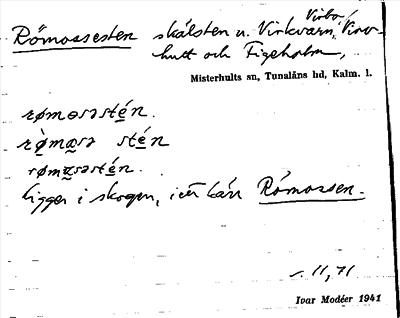 Römossesten skälsten u. Virkvarn, Virbo, Virv-
hutt och Figeholm,
Misterhults sn, Tunaläns hd, Kalm. l.
røməsəstén.
rø̀ma̰sə stén
røma̰səstén.
ligger i skogen, i ett kärr Römossen.
11,71
Ivar Modéer 1941